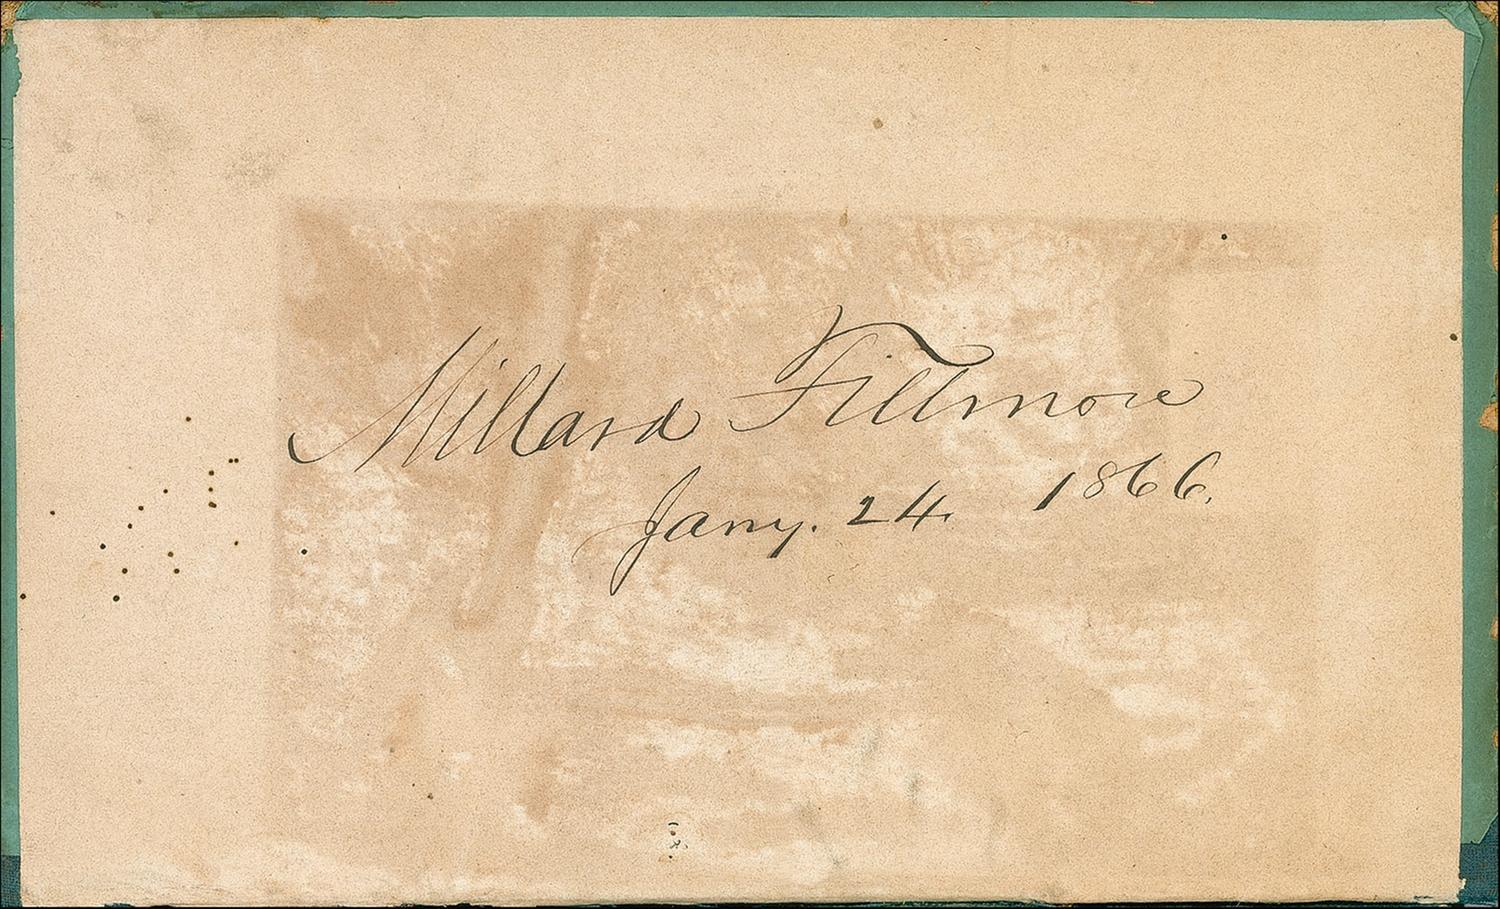 Millard Fillmore
Jany. 24. 1866.